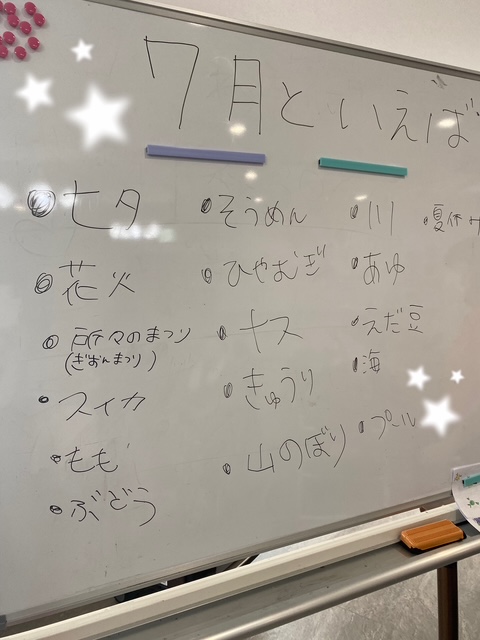 7月といえば
・七夕
・花火
・所々のまつり
(ぎおんまつり)
・スイカ
・もも
・ぶどう
・そうめん
・ひやむぎ
・ナス
・きゅうり
・山のぼり
・川
・あゆ
・えだ豆
・海
・プール
・夏休み